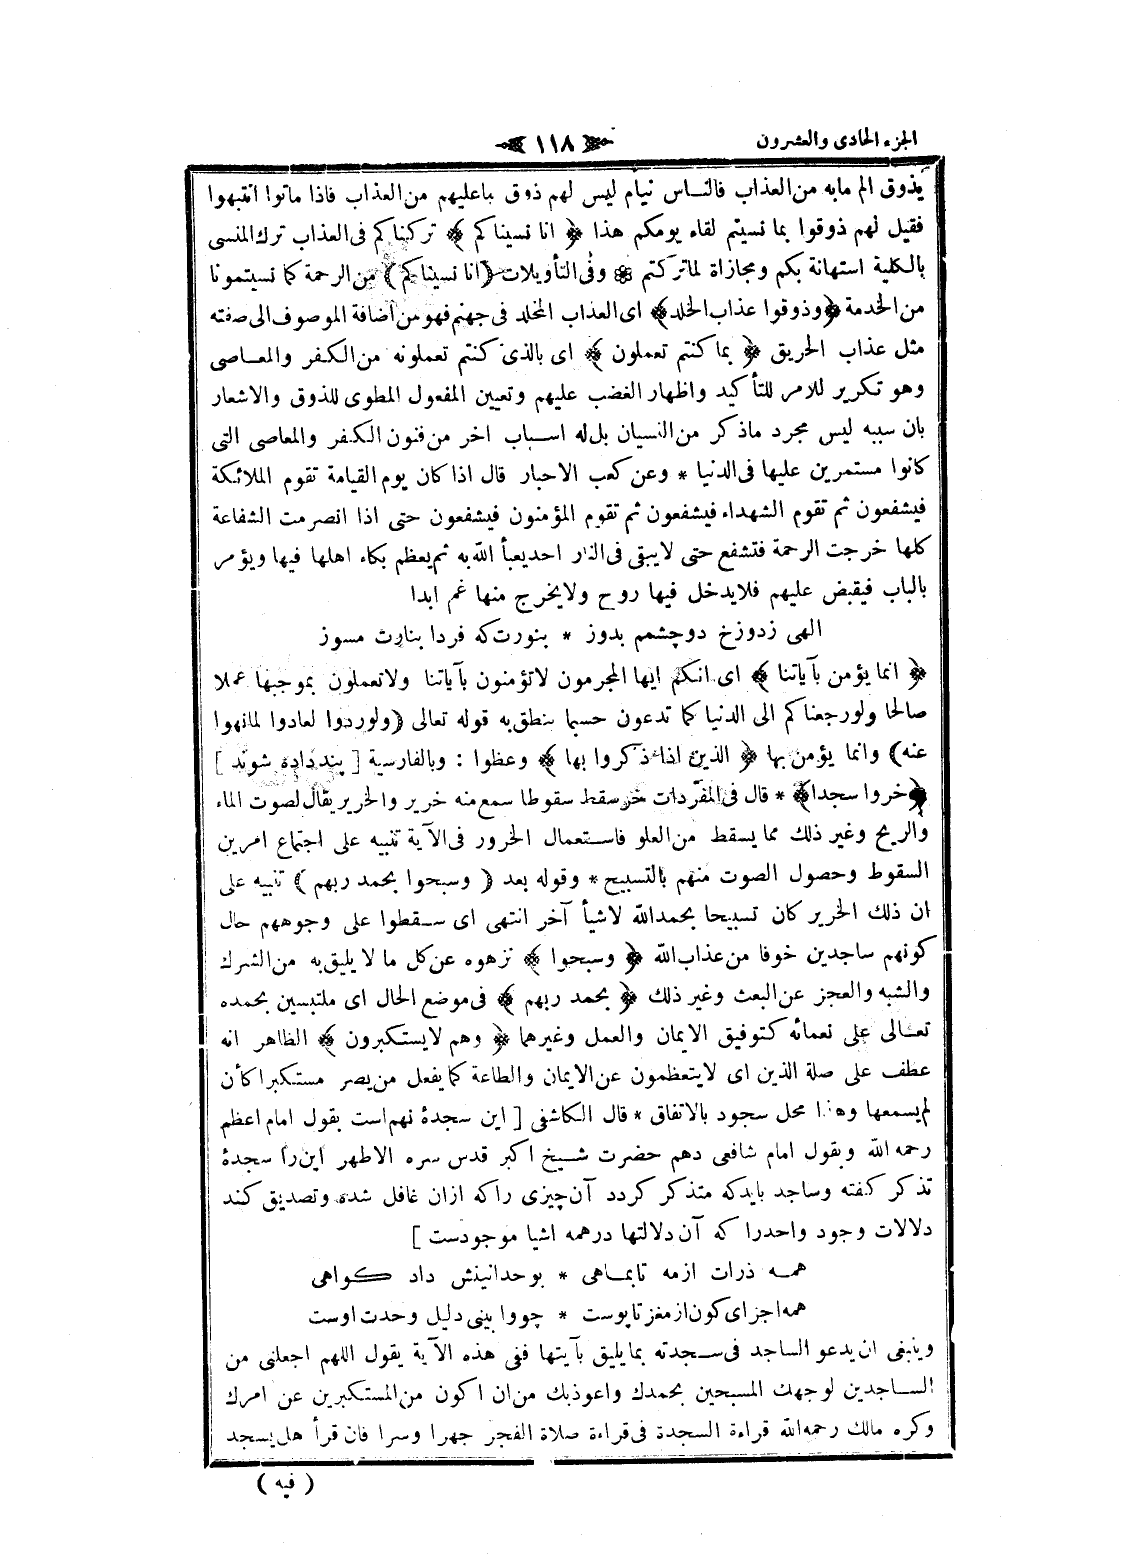 الجزء الحادى والعشرون
١١٨
يذوق الم مابه من العذاب فالناس نيام ليس لهم ذوق باعليهم من العذاب فاذا ماتوا انتبهوا
فقيل لهم ذوقوا بما نسيتم لقاء يومكم هذا ﴿ انا نسيناكم ﴾ تركناكم فى العذاب ترك المنسى
بالكلية استهانة بكم ومجازاة لماتركتم ❁ وفى التأويلات (انا نسيناكم) من الرحمة كما نسيتمونا
من الخدمة ﴿وذوقوا عذاب الخلد﴾ اى العذاب المخلد فى جهنم فهو من اضافة الموصوف الى صفته
مثل عذاب الحريق ﴿ بما كنتم تعملون ﴾ اى بالذى كنتم تعملونه من الكفر والمعاصى
وهو تكرير للامر للتأكيد واظهار الغضب عليهم وتعيين المفعول المطوى للذوق والاشعار
بان سببه ليس مجرد ماذكر من النسيان بل له اسباب اخر من فنون الكفر والمعاصى التى
كانوا مستمرين عليها فى الدنيا * وعن كعب الاحبار قال اذا كان يوم القيامة تقوم الملائكة
فيشفعون ثم تقوم الشهداء فيشفعون ثم تقوم المؤمنون فيشفعون حتى اذا انصرمت الشفاعة
كلها خرجت الرحمة فتشفع حتى لايبقى فى النار احد يعبأ الله به ثم يعظم بكاء اهلها فيها ويؤمر
بالباب فيقبض عليهم فلايدخل فيها روح ولايخرج منها غم ابدا
الهى زدوزخ دوچشمم بدوز * بنورت كه فردا بنارت مسوز
﴿ انما يؤمن بآياتنا ﴾ اى انكم ايها المجرمون لاتؤمنون بآياتنا ولاتعملون بموجبها عملا
صالحا ولو رجعناكم الى الدنيا كما تدعون حسبما ينطق به قوله تعالى (ولوردوا لعادوا لمانهوا
عنه) وانما يؤمن بها ﴿ الذين اذا ذكروا بها ﴾ وعظوا : وبالفارسية [ پند داده شوند ]
﴿خروا سجدا﴾ * قال فى المفردات خر سقط سقوطا سمع منه خرير والخرير يقال لصوت الماء
والريح وغير ذلك مما يسقط من العلو فاستعمال الخرور فى الآية تنبيه على اجتماع امرين
السقوط وحصول الصوت منهم بالتسبيح * وقوله بعد ( وسبحوا بحمد ربهم ) تنبيه على
ان ذلك الخرير كان تسبيحا بحمدالله لاشيأ آخر انتهى اى سقطوا على وجوههم حال
كونهم ساجدين خوفا من عذاب الله ﴿ وسبحوا ﴾ نزهوه عن كل ما لا يليق به من الشرك
والشبه والعجز عن البعث وغير ذلك ﴿ بحمد ربهم ﴾ فى موضع الحال اى ملتبسين بحمده
تعالى على نعمائه كتوفيق الايمان والعمل وغيرهما ﴿ وهم لايستكبرون ﴾ الظاهر انه
عطف على صلة الذين اى لايتعظمون عن الايمان والطاعة كما يفعل من يصر مستكبرا كأن
لم يسمعها وهذا محل سجود بالاتفاق * قال الكاشفى [ اين سجدهٔ نهم است بقول امام اعظم
رحمه الله وبقول امام شافعى دهم حضرت شيخ اكبر قدس سره الاطهر اين را سجدهٔ
تذكر كفته وساجد بايدكه متذكر كردد آن چيزى راكه ازان غافل شده وتصديق كند
دلالات وجود واحدرا كه آن دلالتها درهمه اشيا موجودست ]
همه ذرات ازمه تابماهى * بوحدانيتش داد كواهى
همه اجزاى كون از مغز تاپوست * چووا بينى دليل وحدت اوست
وينبغى ان يدعو الساجد فى سجدته بمايليق بآيتها ففى هذه الآية يقول اللهم اجعلنى من
الساجدين لوجهك المسبحين بحمدك واعوذبك من ان اكون من المستكبرين عن امرك
وكره مالك رحمه الله قراءة السجدة فى قراءة صلاة الفجر جهرا وسرا فان قرأ هل يسجد
( فيه )